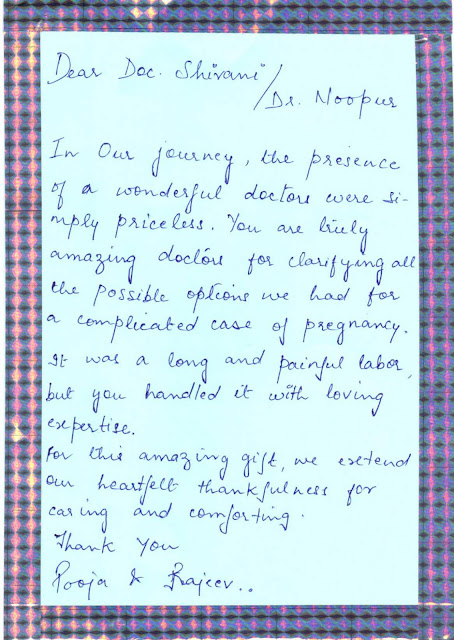 Dear Doc. Shivani
/Dr. Noopur
In Our journey, the presence
of a wonderful doctors were si-
mply priceless. You are truly
amazing doctors for clarifying all
the possible options we had for
a complicated case of pregnancy.
It was a long and painful labor,
but you handled it with loving
expertise.
For this amazing gift, we extend
our heartfelt thankfulness for
caring and comforting.
Thank You
Pooja & Rajeev..